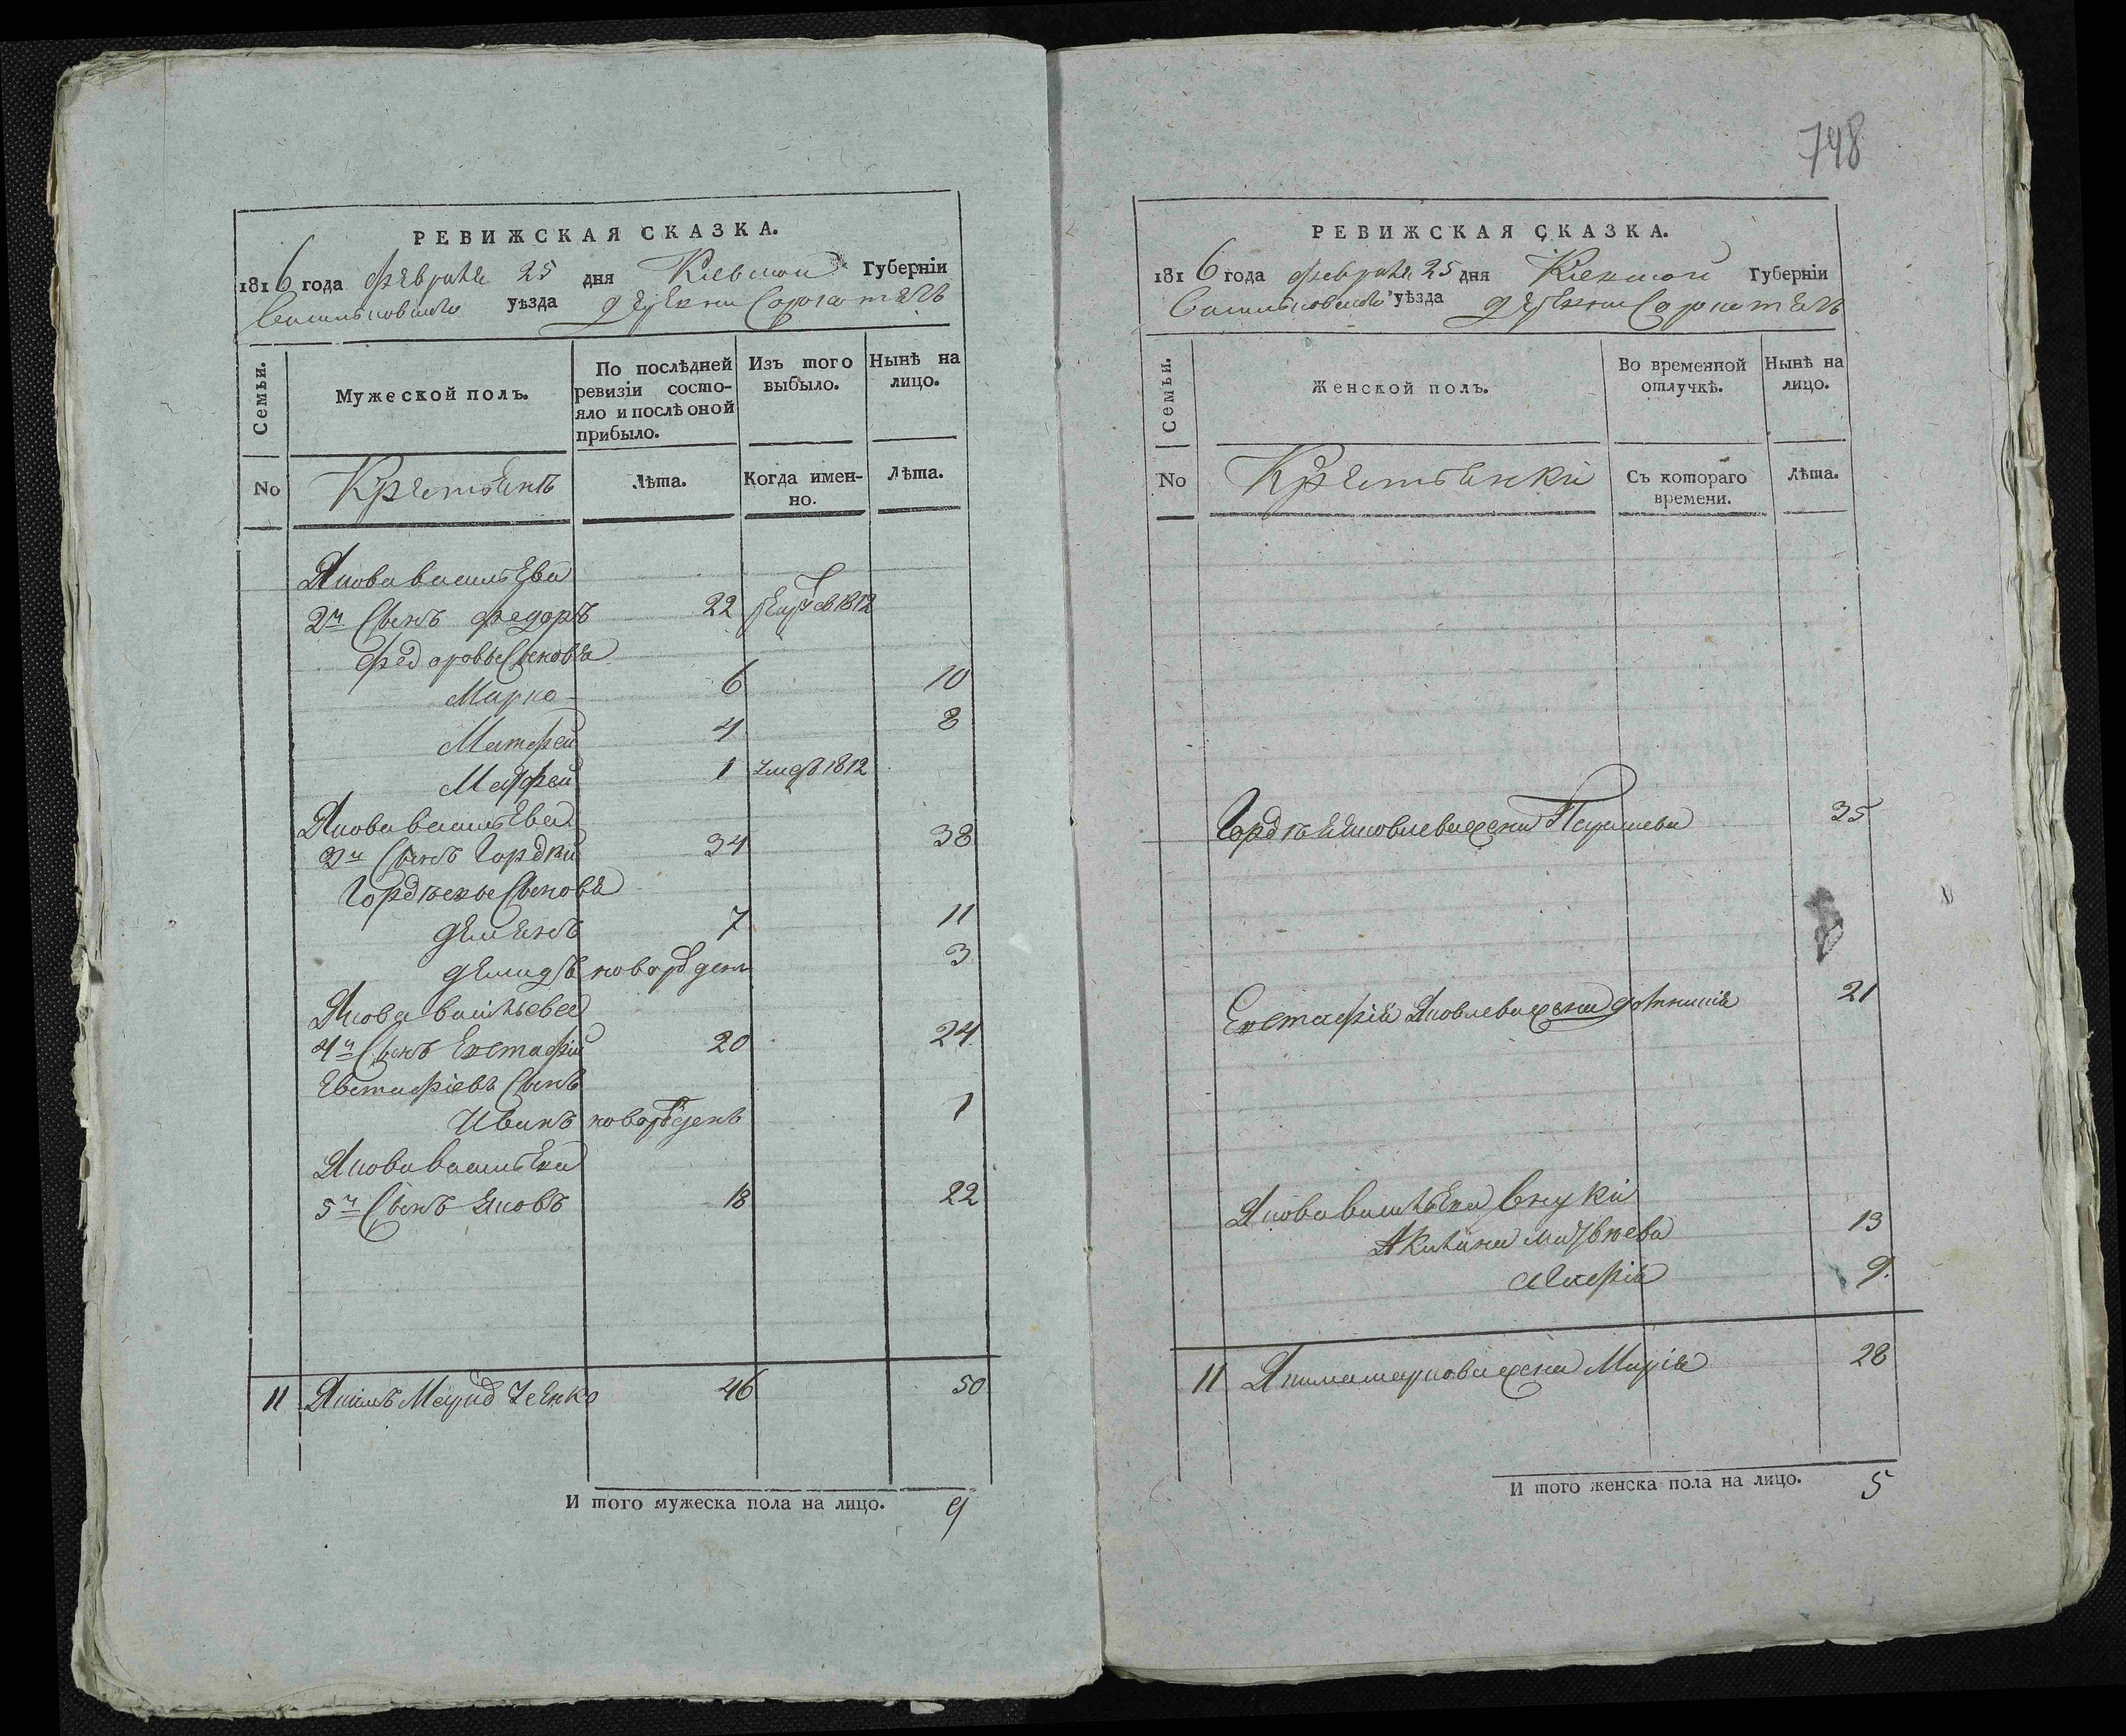 РЕВИЖСКАЯ СКАЗКА.
1816 года февраля 25 дня Киевской Губернiи
Васильковского уѣзда деревни Сорокотягъ
Семьи.
Мужеской полъ.
По послѣдней ревизiи состо-
яло и послѣ оной
прибыло.
Изъ того выбыло.
Нынѣ на лицо.
No
Крестьянъ
Лѣта.
Когда имен-
но.
Лѣта.
Якова васильева
2й Сынъ Федоръ 22 1812
Федоровы Сыновья
Марко 6 10
Матфей 4 8
1 умеръ 1812
Якова васильева
3й Сынъ Гордѣй 34 38
Гордѣевы Сыновья
Демянъ 7 11
Демидъ новорожденъ 3
Якова васильева
4й Сынъ Евстафiй 20 24
Евстафiевъ Сынъ
Иванъ новорожденъ 1
Якова васильева
5й Сынъ Яковъ 18 22
11 Якимъ 46 50
И того мужеска пола на лицо. 9
748
РЕВИЖСКАЯ СКАЗКА.
1816 года февраля 25 дня Киевской Губернiи
Васильковского уѣзда деревни Сорокотягъ
Семьи.
Женской полъ.
Во временной
отлучкѣ.
Нынѣ на
лицо.
No
Крестьянки
Съ котораго
времени.
Лѣта.
Гордѣя Яковлева жена 35
Евстафiя Яковлева жена 21
Якова васильева внуки
Акилина матвѣева 13
9
11 Якима маркова жена Марiя 28
И того женска пола на лицо. 5